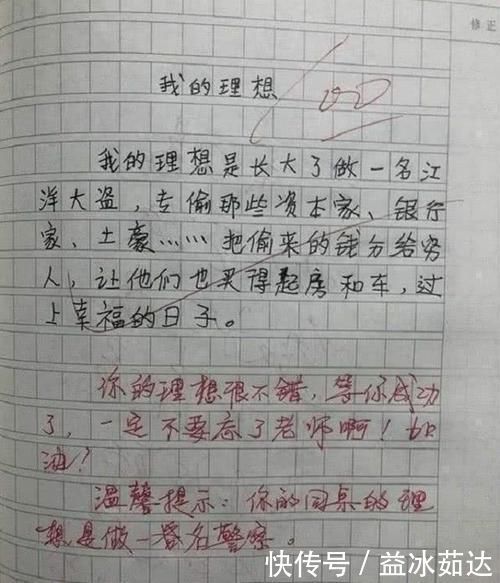 修正
我的理想
我的理想是长大了做一名江
洋大盗，专偷那些资本家、银行
家、土豪……把偷来的钱分给穷
人，让他们也买得起房和车，过
上幸福的日子。
你的理想很不错，等你成功
了，一定不要忘了老师啊！加
油！
温馨提示：你的同桌的理
想是做一名警察。
快传号／益冰茹达